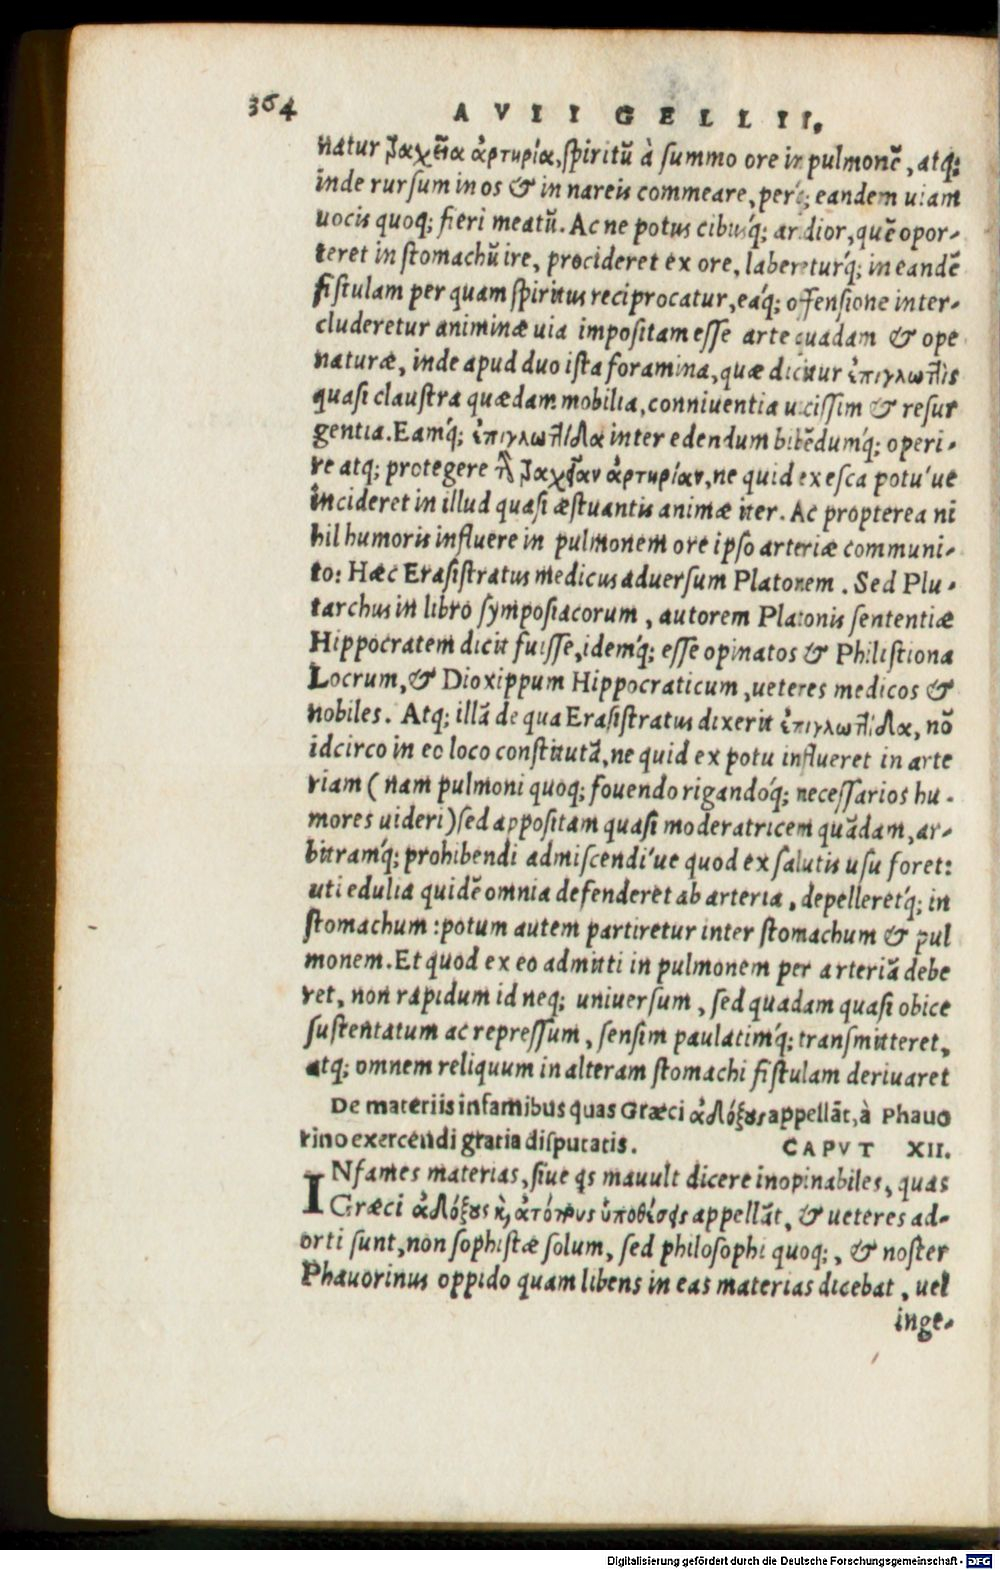 364 AVII GELLII.
natur τραχεῖα ἀρτηρία, spiritũ à summo ore in pulmonẽ, atq;
inde rursum in os & in nareis commeare, perq́; eandem uiam
uocis quoq; fieri meatũ. Ac ne potus cibusq́; aridior, quẽ opor-
teret in stomachũ ire, procideret ex ore, labereturq́; in eandẽ
fistulam per quam spiritus reciprocatur, eaq́; offensione inter-
cluderetur animæ uia impositam esse arte quadam & ope
naturæ, inde apud duo ista foramina, quæ dicitur ἐπιγλωττὶς
quasi claustra quædam mobilia, conniuentia uicissim & resur
gentia. Eamq́; ἐπιγλωττίδα inter edendum bibẽdumq́; operi-
re atq; protegere τὴν τραχεῖαν ἀρτηρίαν, ne quid ex esca potu'ue
incideret in illud quasi æstuantis animæ iter. Ac propterea ni
hil humoris influere in pulmonem ore ipso arteriæ communi-
to: Hæc Erasistratus medicus aduersum Platonem. Sed Plu-
tarchus in libro symposiacorum, autorem Platonis sententiæ
Hippocratem dicit fuisse, idemq́; esse opinatos & Philistiona
Locrum, & Dioxippum Hippocraticum, ueteres medicos &
nobiles. Atq; illã de qua Erasistratus dixerit ἐπιγλωττίδα, nõ
idcirco in eo loco constitutã, ne quid ex potu influeret in arte
riam (nam pulmoni quoq; fouendo rigandoq́; necessarios hu-
mores uideri) sed appositam quasi moderatricem quãdam, ar-
bitramq́; prohibendi admiscendi'ue quod ex salutis usu foret:
uti edulia quidẽ omnia defenderet ab arteria, depelleretq́; in
stomachum: potum autem partiretur inter stomachum & pul
monem. Et quod ex eo admitti in pulmonem per arteriã debe
ret, non rapidum id neq; uniuersum, sed quadam quasi obice
sustentatum ac repressum, sensim paulatimq́; transmitteret,
atq; omnem reliquum in alteram stomachi fistulam deriuaret
De materiis infamibus quas Græci ἀδόξους appellãt, à Phauo
rino exercendi gratia disputatis. CAPVT XII.
INfames materias, siue qs mauult dicere inopinabiles, quas
Græci ἀδόξους κὶ ἀτόπους ὑποθέσεις appellãt, & ueteres ad-
orti sunt, non sophistæ solum, sed philosophi quoq;, & noster
Phauorinus oppido quam libens in eas materias dicebat, uel
inge-
Digitalisierung gefördert durch die Deutsche Forschungsgemeinschaft - DFG